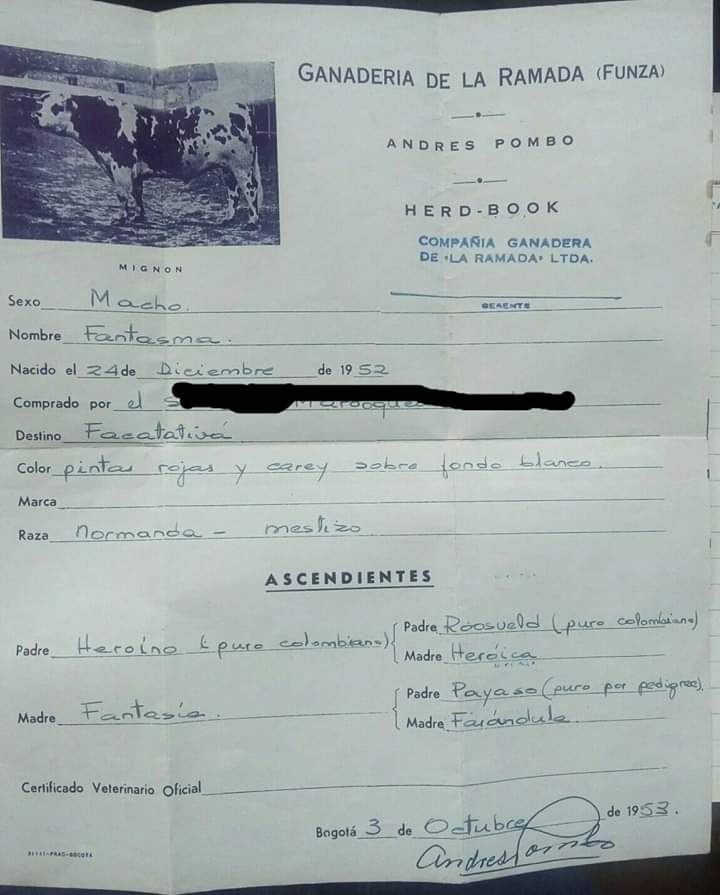 GANADERIA DE LA RAMADA (FUNZA)
ANDRES POMBO
HERD-BOOK
COMPAÑIA GANADERA
DE "LA RAMADA" LTDA.
GERENTE
MIGNON
Sexo Macho.
Nombre Fantasma.
Nacido el 24 de Diciembre de 1952
Comprado por el
Destino Facatativá
Color pintas rojas y carey sobre fondo blanco.
Marca
Raza normanda - mestizo
ASCENDIENTES
Padre Heroíno (puro colombiano)
Padre Róosveld (puro colombiano)
Madre Heróica
Madre Fantasía.
Padre Payaso (puro por pedigree).
Madre Farándula.
Certificado Veterinario Oficial
Bogotá 3 de Octubre de 1953.
Andres Pombo